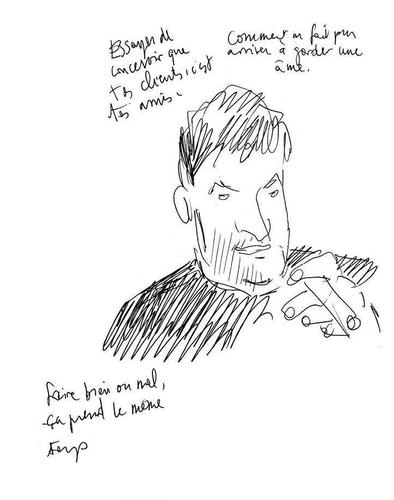 Essayer de
concevoir que
tes clients, c'est
tes amis.
Comment on fait pour
arriver à garder une
âme.
Faire bien ou mal,
ça prend le même
temps